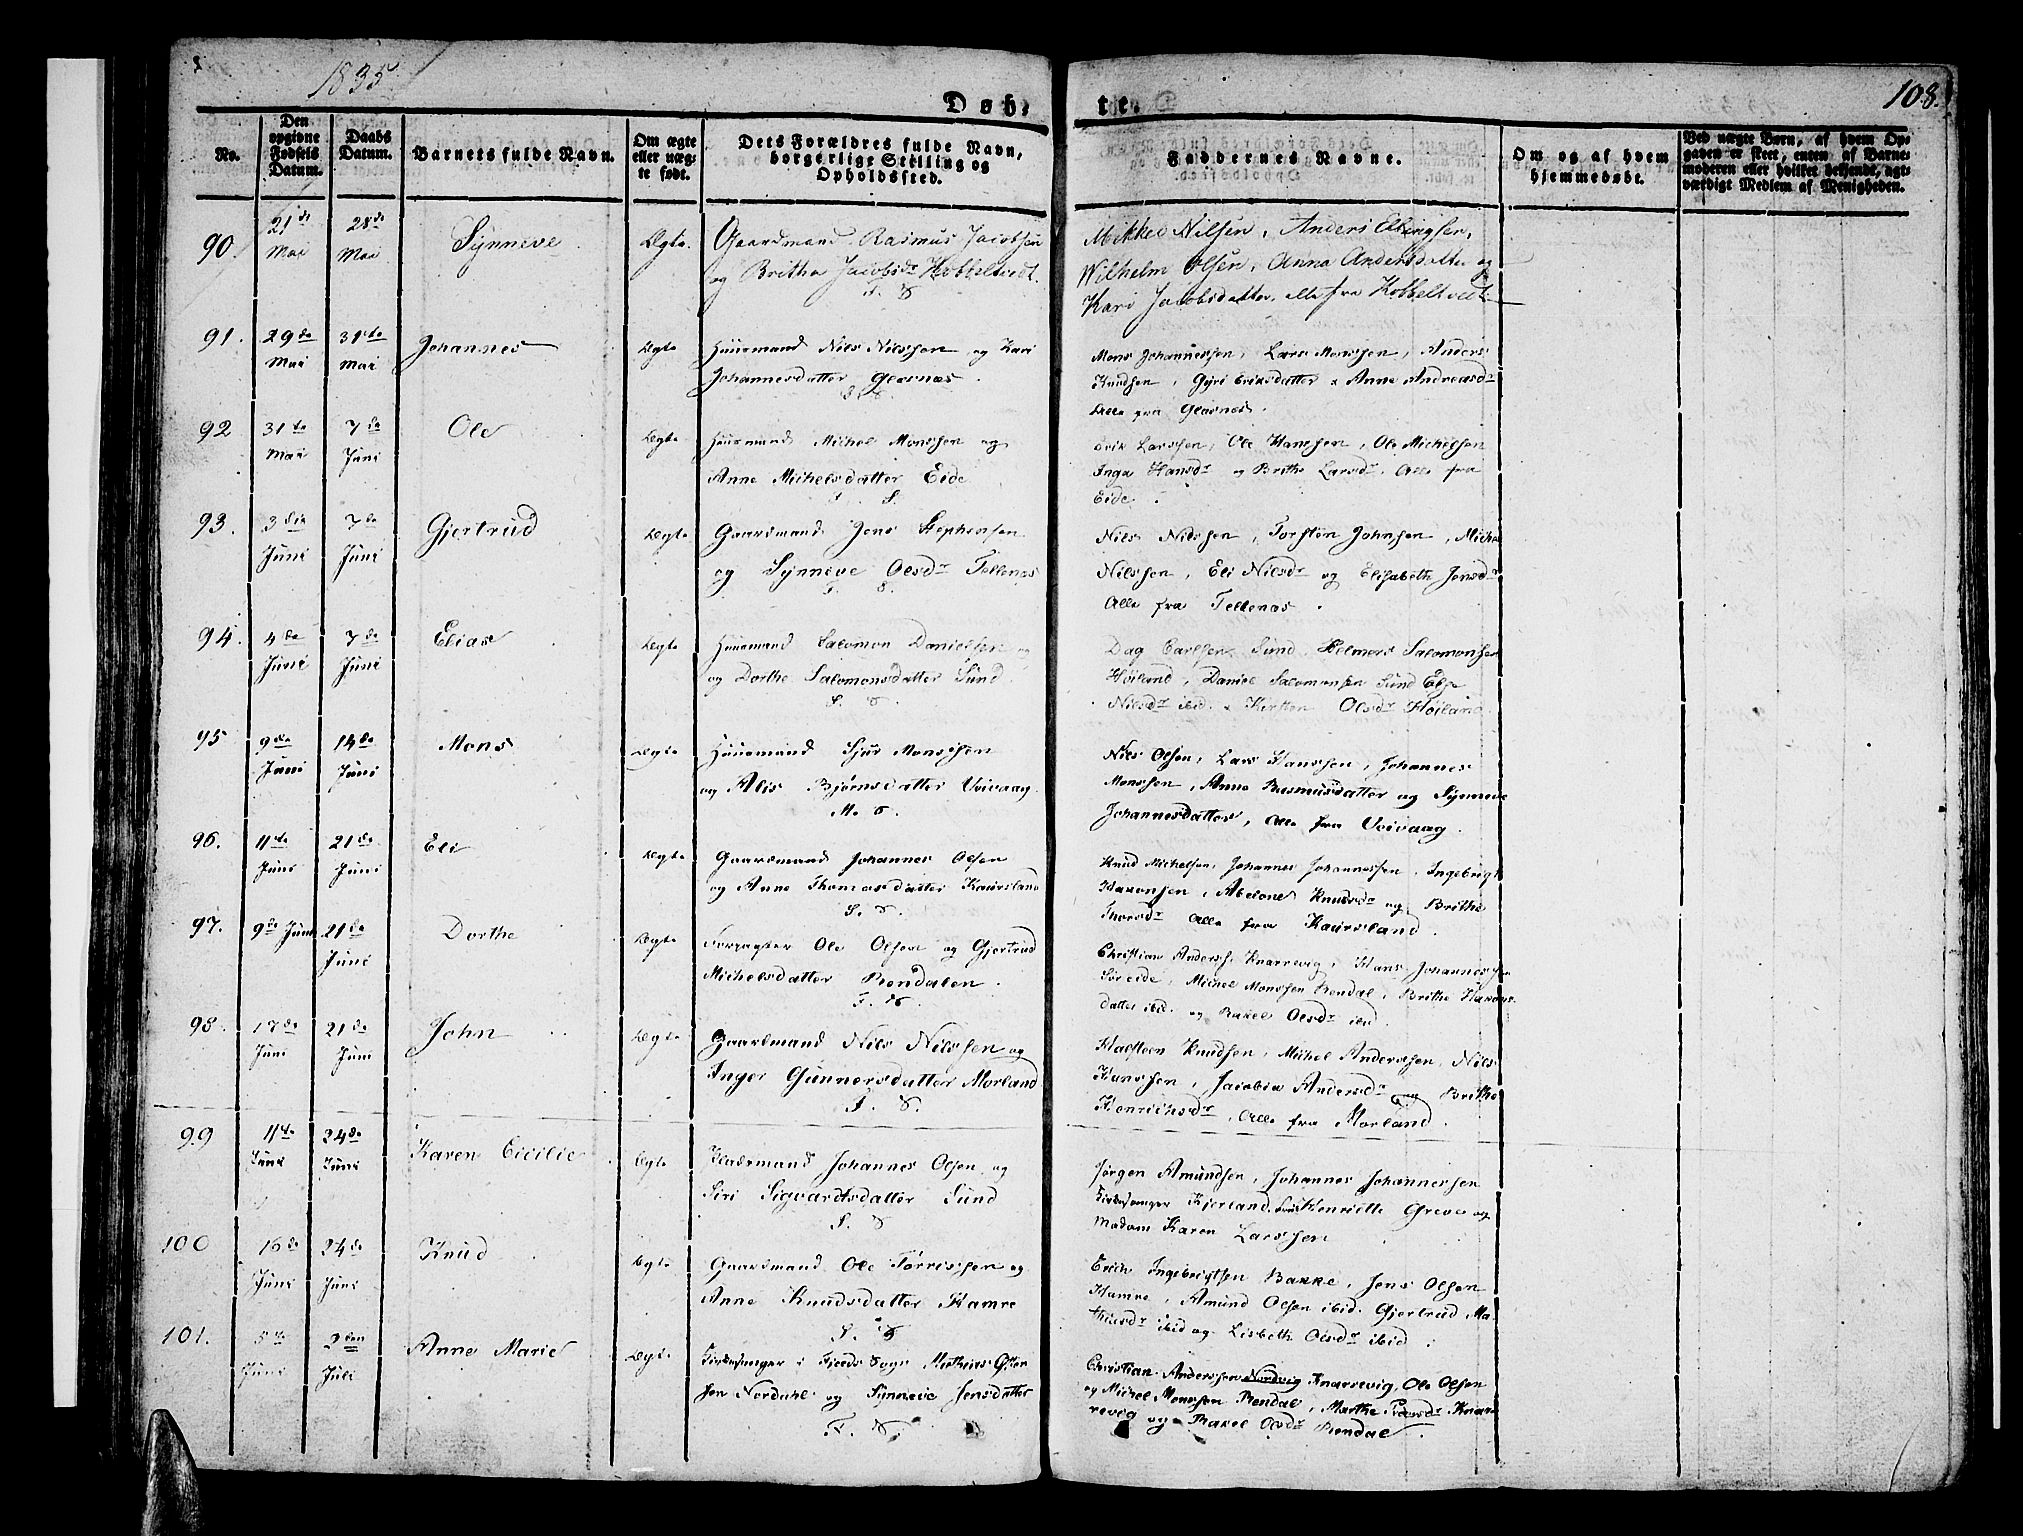 1835
108.
Døb-
te.
No.
Den opgivne Fødsels Datum.
Daabs Datum.
Barnets fulde Navn.
Om ægte eller uægte født.
Dets Forældres fulde Navn, borgerlige Stilling og Opholdssted.
Faddernes Navne.
Om og af hvem hjemmedøbt.
Ved uægte Børn, af hvem Opgaven er skeet, enten af Barnemoderen eller hvilket bekjendt, agtværdigt Medlem af Menigheden.
90. 21de Mai 28de Mai Synneve Ægte. Gaardmand Rasmus Jacobsen
og Britha Jacobsdr Kobbeltvedt.
F. S
Mikkel Nilsen, Anders Ellingsen,
Wilhelm Olsen, Anna Andersdatter og
Kari Jacobsdatter, alle fra Kobbeltvedt
91. 29de Mai 31te Mai Johannes Ægte Huusmand Nils Nilssen og Kari
Johannesdatter Glesnæs.
S. S.
Mons Johannessen, Lars Monssen, Anders
Knudsen, Gyri Eriksdatter & Anne Andreasdr
Alle fra Glesnæs.
92 31te Mai 7de Juni Ole Ægte Huusmand Michel Monssen og
Anne Michelsdatter Eide
Erik Larssen, Ole Hanssen, Ole Michelsen
Inga Hansdr og Brithe Larsdr, Alle fra
Eide.
93. 3die Juni 7de Juni Gjertrud Ægte Gaardmand Jens Stephensen
og Synneve Olsdr Tellenæs
F. S.
Nils Nilssen, Torsten Johnsen, Michel
Nilssen, Eli Nilsdr og Elisabeth Jensdr
Alle fra Tellenæs.
94. 4de Juni 7de Juni Elias Ægte Huusmand Salomon Danielsen
og Dorthe Salomonsdatter Sund.
S. S.
Dag Carlsen Sund, Helmers Salomonsen
Høiland, Daniel Salomonsen Sund
Nilsdr ibid. & Kirsten Olsdr Høiland.
95 9de Juni 14de Juni Mons Ægte Huusmand Sjur Monssen
og Alis Bjørnsdatter Veivaag
M. S.
Nils Olsen, Lars Hanssen, Johannes
Monssen, Anne Rasmusdatter og Synneve
Johannesdatter, Alle fra Veivaag.
96. 11te Juni 21de Juni Eli Ægte Gaardmand Johannes Olsen
og Anne Thomasdatter Kaursland
S. S.
Knud Michelsen, Johannes Johannessen, Ingebrigt
Haconsen, Abelone Knudsdr og Brithe
Thorsdr Alle fra Kaursland.
97. 9de Juni 21de Juni Dorthe Ægte Forpagter Ole Olsen og Gjertrud
Michelsdatter Rendalen.
F. S.
Christian Anderss. Knarrevig, Hans Johannessen
Søreide, Michel Monssen Rendal, Brithe Hacons
datter ibid. og Rakel Olsdr ibid.
98. 17de Juni 21de Juni John Ægte Gaardmand Nils Nilssen og
Inger Gunnersdatter Morland
F. S.
Halsteen Knudsen, Michel Anderssen, Nils
Hanssen, Jacobia Andersdr og Brithe
Henrichsdr, Alle fra Morland.
99 11te Juni 24de Juni Karen Cicilie Ægte Johannes Olsen og
Siri Sigvardtsdatter Sund
S. S
Jørgen Amundsen, Johannes Johannessen
Kirkesanger Kjerland, Henriette Greve og
Madam Karen Larssen
100 16de Juni 24de Juni Knud Ægte Gaardmand Ole Tørrissen og
Anne Knudsdatter Hamre
S. S
Erich Ingebrigtsen Bakke, Jens Olsen
Hamre, Amund Olsen ibid. Gjertrud Ma-
thiasdr ibid og Lisbeth Olsdr ibid.
101. 5te Juni 2den Juli Anne Marie Ægte Kirkesanger i Fjelds Sogn Mathias
sen Nordahl og Synneve Jensdatter
F. S.
Christian Anderssen Nordvig Knarrevig, Ole Olsen
og Michel Monssen Rendal, Marthe Knar-
revig og Rakel Olsdr Rendal.